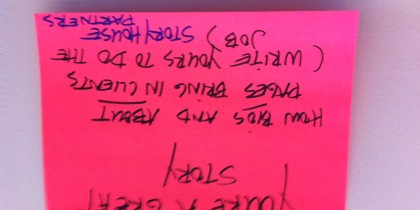 YOU'RE A GREAT
STORY
HOW BIOS AND ABOUT
PAGES BRING IN CLIENTS
(WRITE YOURS TO DO THE
JOB) STORYHOUSE
PARTNERS